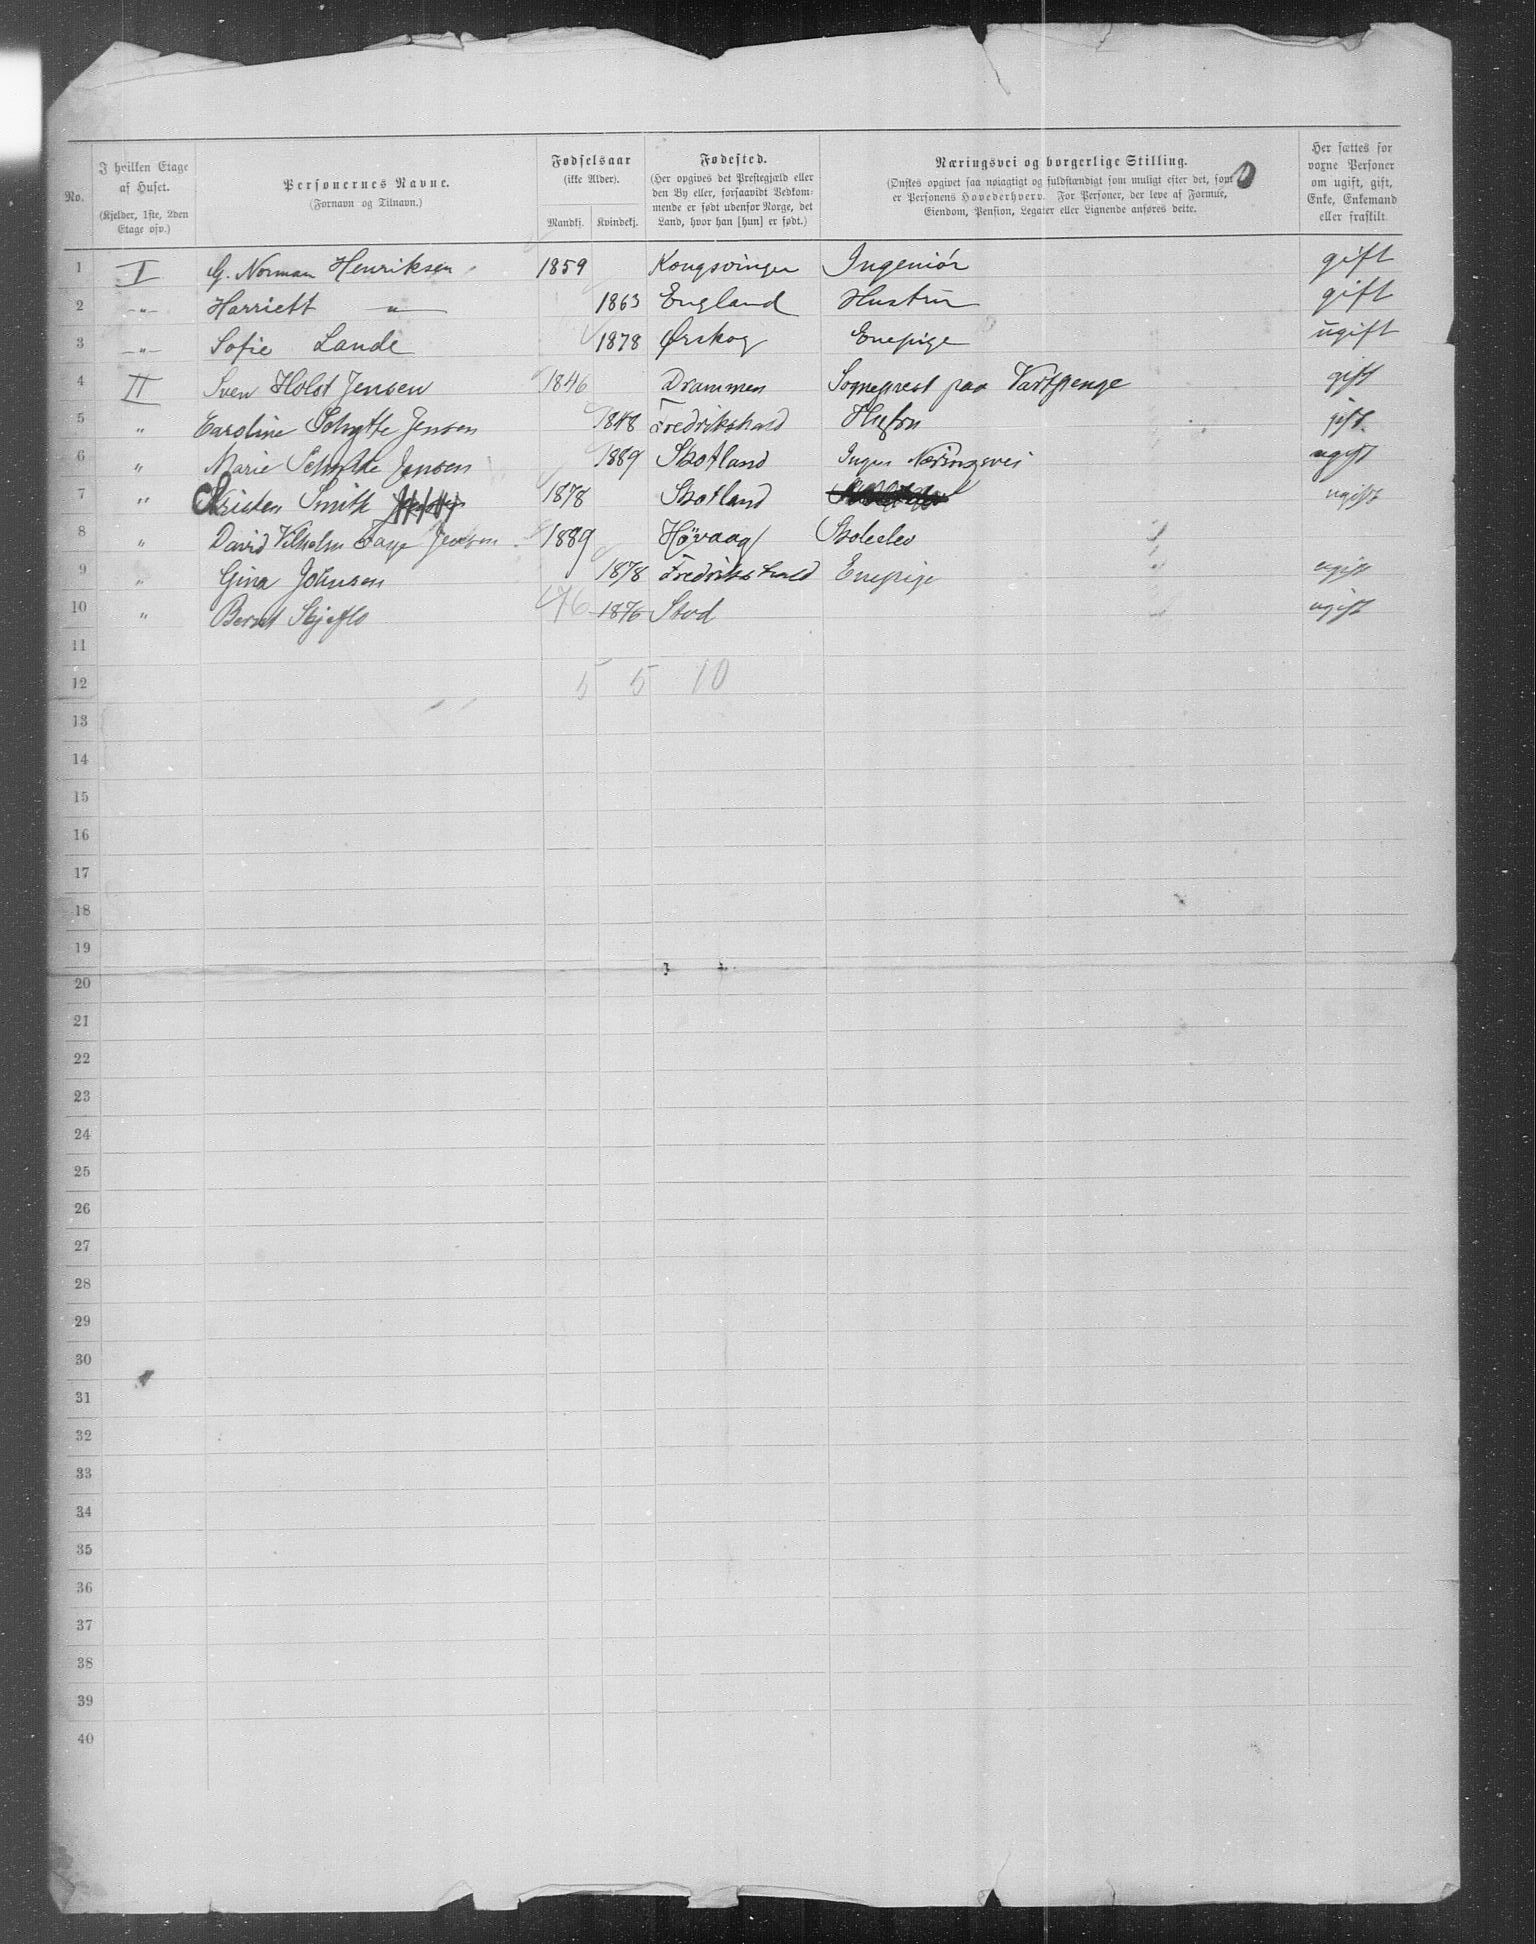 No.
I hvilken Etage af Huset.
(Kjelder, 1ste, 2den Etage osv.)
Personernes Navne.
(Fornavn og Tilnavn.)
Fødselsaar
(ikke Alder).
Mandkj. Kvindekj.
Fødested.
(Her opgives det Prestegjæld eller
den By eller, forsaavidt Vedkom-
mende er født udenfor Norge, det
Land, hvor han [hun] er født.)
Næringsvei og borgerlige Stilling.
(Ønskes opgivet saa nøiagtigt og fuldstændigt som muligt efter det, som
er Personens Hovederhverv. For Personer, der leve af Formue,
Eiendom, Pension, Legater eller Lignende anføres dette.
0
Her sættes for
voxne Personer
om ugift, gift,
Enke, Enkemand
eller fraskilt.
1 I G. Norman Henriksen 1859 Kongsvinger Ingeniör gift
2 -"- Harriett -"- 1863 England Hustru gift
3 -"- Sofie Lande 1878 Ørskog Enepige ugift
4 II Sven Holst Jensen 1846 Drammen Sogneprest paa Vartpenge gift
5 " Caroline Schytte Jensen 1848 Fredrikshald Husfru gift
6 " Marie Schytte Jensen 1889 Skotland Ingen Næringsvei ugift
7 " Kristen Smith 1878 Skotland ugift
8 " David Vilhelm Faye Jensen 1889 Høvaag Skoleelev
9 " Gina Johnsen 1878 Fredrikshald Enepige ugift
10 " Bernt Skjeflo 76 1876 Stod ugift
11
12 5 5 10
13
14
15
16
17
18
19
20
21
22
23
24
25
26
27
28
29
30
31
32
33
34
35
36
37
38
39
40